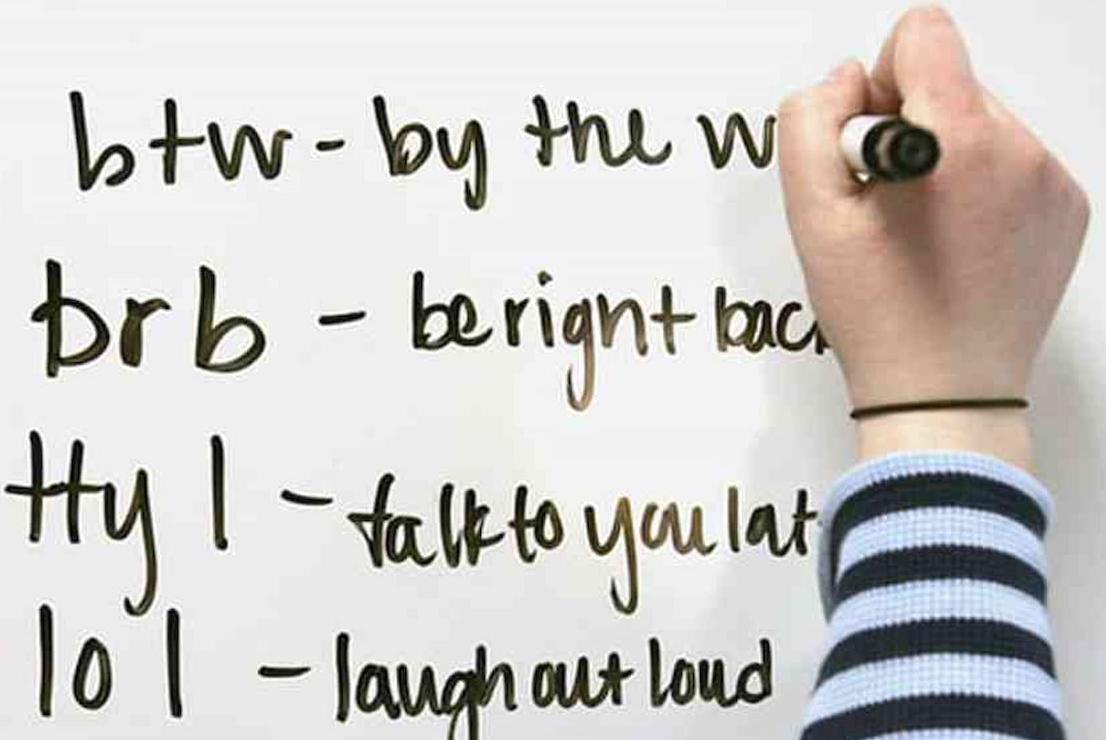 btw - by the w
brb - be right back
ttyl - talk to you lat
lol - laugh out loud